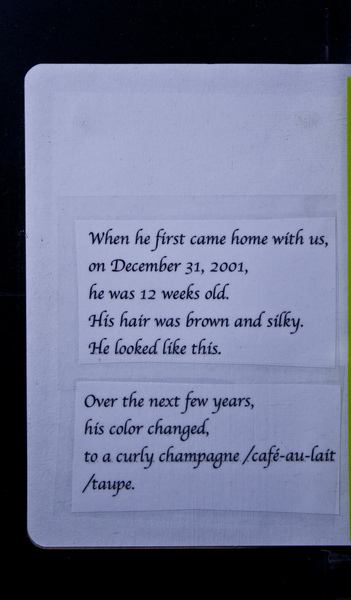 When he first came home with us,
on December 31, 2001,
he was 12 weeks old.
His hair was brown and silky.
He looked like this.
Over the next few years,
his color changed,
to a curly champagne /café-au-lait
/taupe.